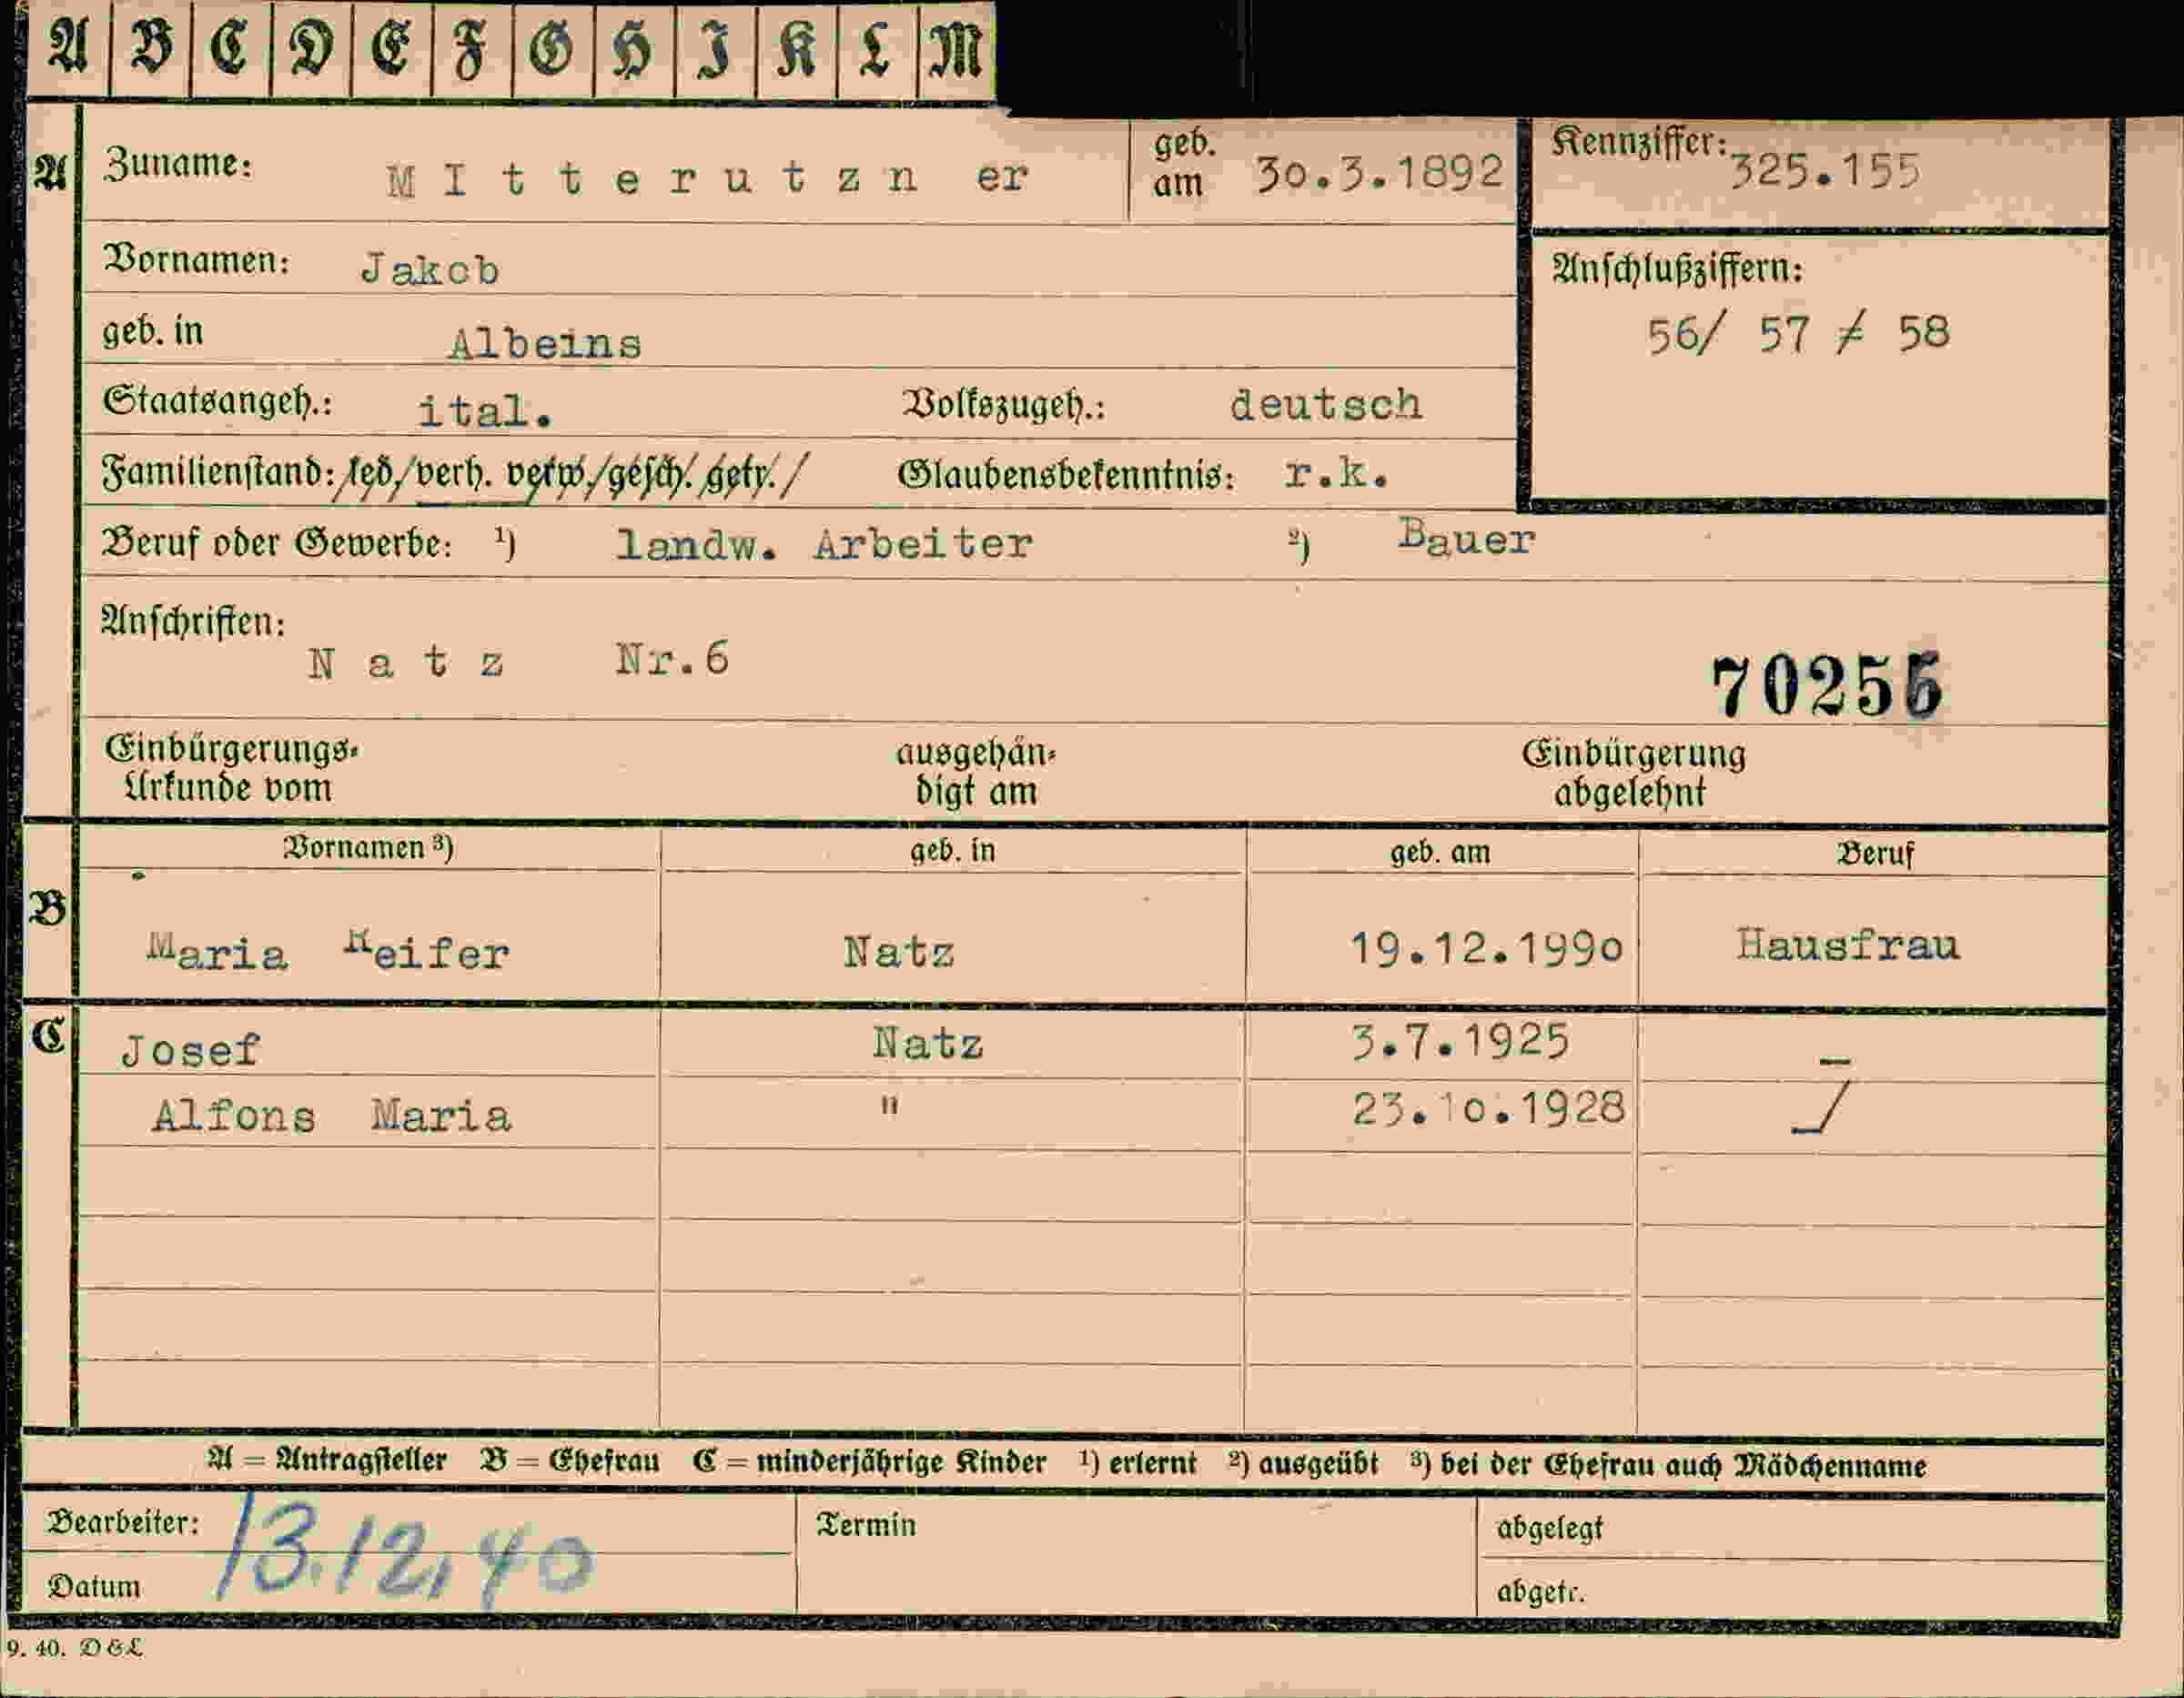 A B C D E F G H I K L M
A Zuname: MItterutzn er geb. am 30.3.1892 Kennziffer: 325.155
Vornamen: Jakob Anschlußziffern:
56/ 57 ≠ 58
geb. in Albeins
Staatsangeh.: ital. Volkszugeh.: deutsch
Familienstand: led/verh. verw./gesch./getr./ Glaubensbekenntnis: r.k.
Beruf oder Gewerbe: ¹) landw. Arbeiter ²) Bauer
Anschriften:
Natz Nr.6
Einbürgerungs-Urkunde vom ausgehändigt am Einbürgerung abgelehnt
Vornamen ³) geb. in geb. am Beruf
B Maria Natz 19.12.1990 Hausfrau
C Josef Natz 3.7.1925 –
Alfons Maria " 23.10.1928 –/
A = Antragsteller B = Ehefrau C = minderjährige Kinder ¹) erlernt ²) ausgeübt ³) bei der Ehefrau auch Mädchenname
Bearbeiter: 13.12,40 Termin abgelegt
Datum abgetr.
9. 40. D & L